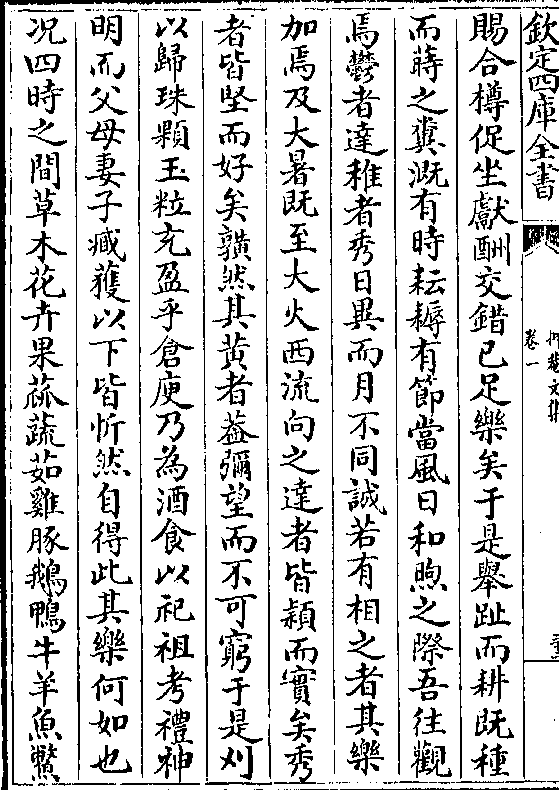 欽定四庫全書
卷一
賜合樽促坐獻酬交錯已足樂矣于是舉趾而耕既種
而蒔之糞溉有時耘耨有節當風日和煦之際吾往觀
焉欝者達稚者秀日異而月不同誠若有相之者其樂
加焉及大暑既至大火西流向之達者皆穎而實矣秀
者皆堅而好矣䕤然其黄者葢彌望而不可窮于是刈
以歸珠顆玉粒充盈乎倉庾乃為酒食以祀祖考禮神
明而父母妻子臧獲以下皆忻然自得此其樂何如也
况四時之間草木花卉果蓏蔬茹雞豚鵝鴨牛羊魚鱉